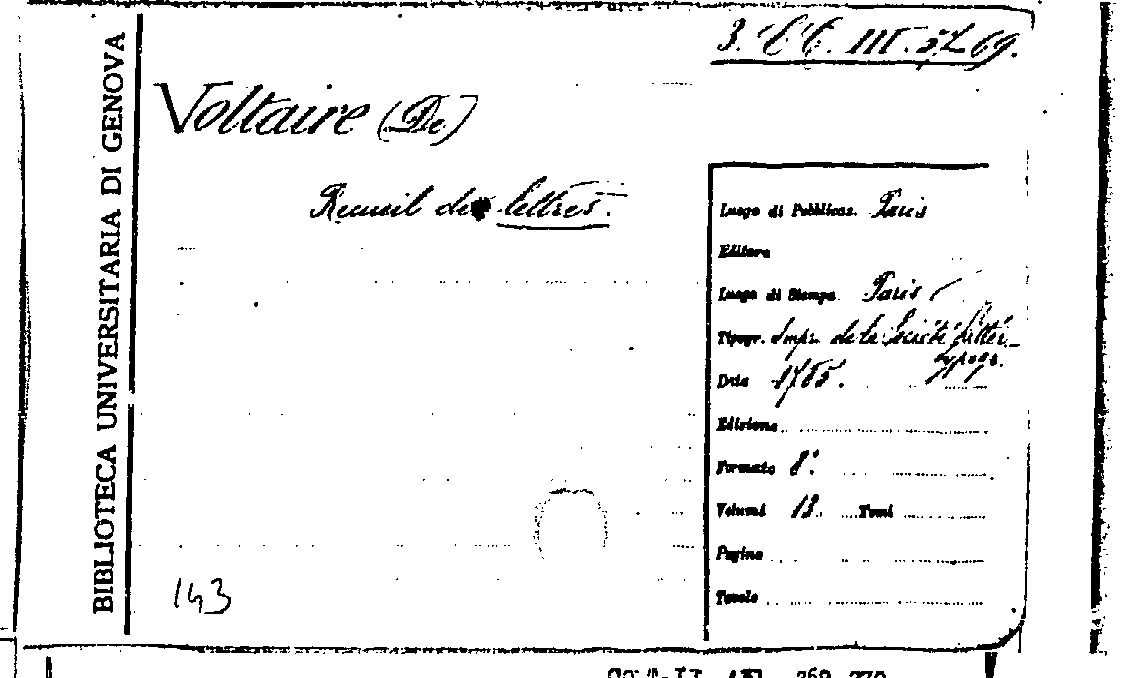 BIBLIOTECA UNIVERSITARIA DI GENOVA
Voltaire (De)
Recueil de lettres.
Luogo di Pubblicaz. Paris
Editore
Luogo di Stampa Paris
Tipogr. Impr. de la Société littér.
typogr.
Data 1785.
Edizione
Formato 8°.
Volumi 13. Tomi
Pagine
Tavole
143